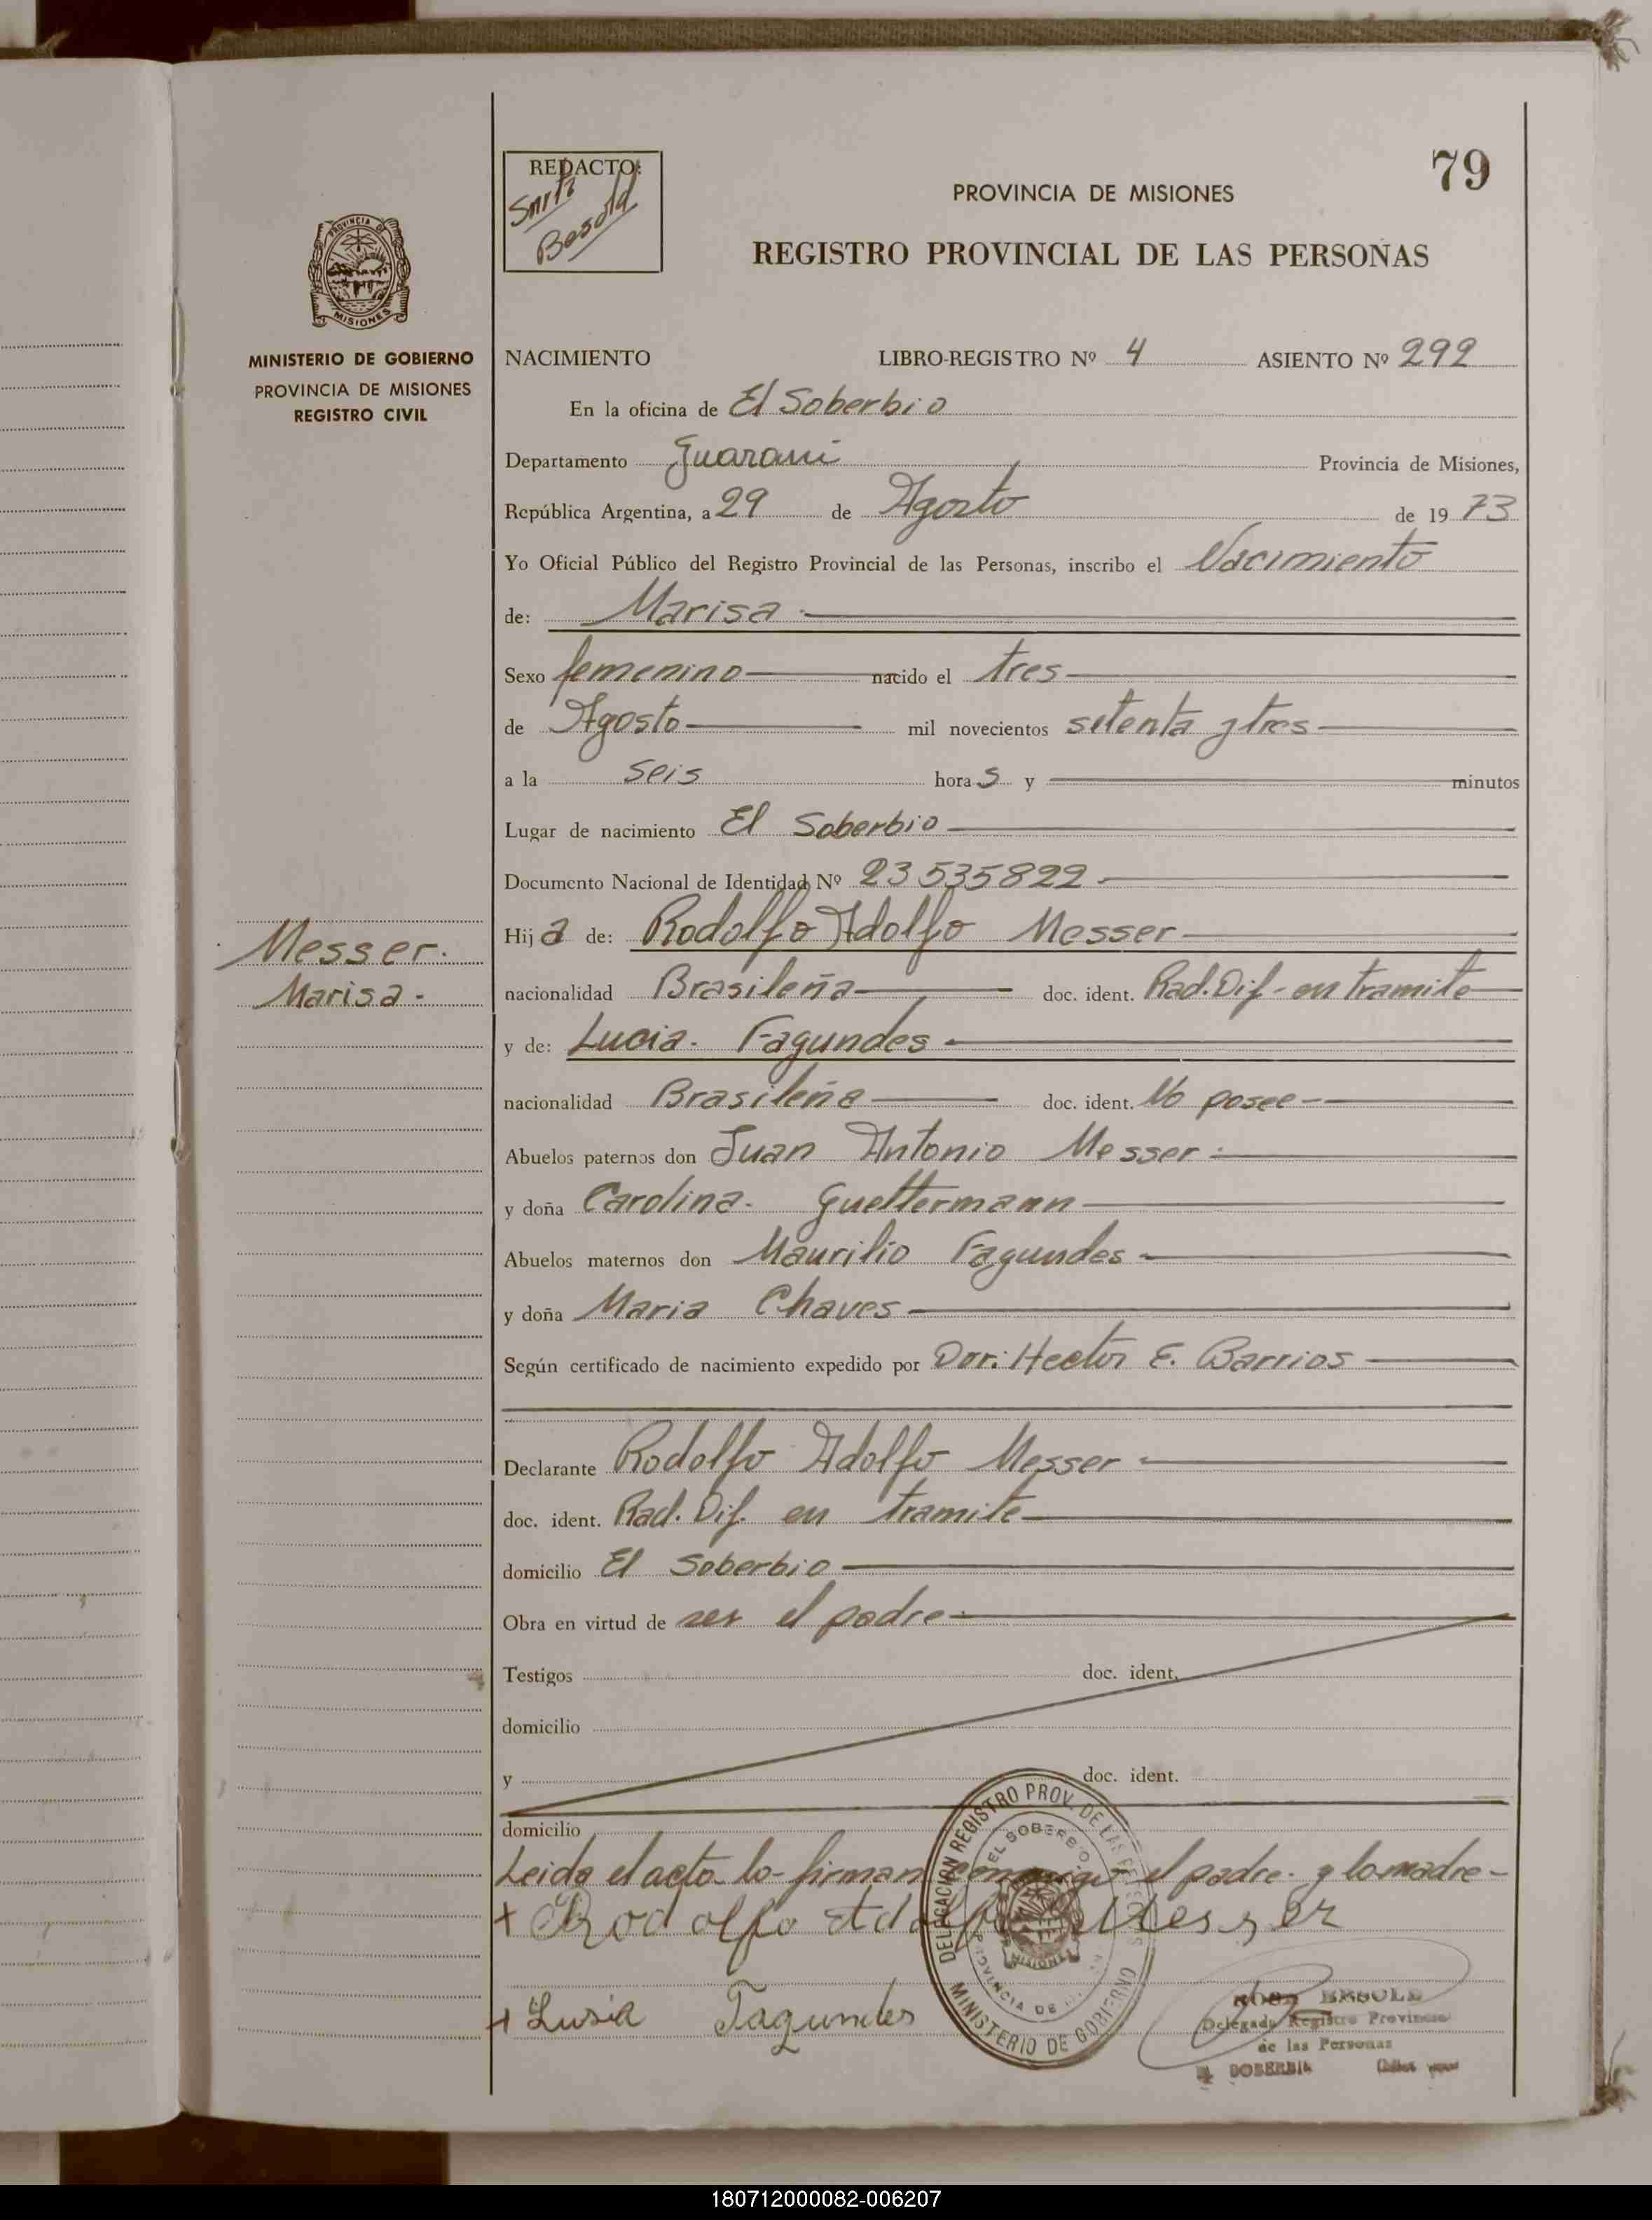 79
REDACTO:
Smith
Besold
PROVINCIA DE MISIONES
REGISTRO PROVINCIAL DE LAS PERSONAS
PROVINCIA DE
MISIONES
MINISTERIO DE GOBIERNO
PROVINCIA DE MISIONES
REGISTRO CIVIL
NACIMIENTO LIBRO-REGISTRO Nº 4 ASIENTO Nº 292
En la oficina de El Soberbio
Departamento Guarani Provincia de Misiones,
República Argentina, a 29 de Agosto de 1973
Yo Oficial Público del Registro Provincial de las Personas, inscribo el Nacimiento
de: Marisa
Sexo femenino nacido el tres
de Agosto mil novecientos setenta y tres
a la seis horas y minutos
Lugar de nacimiento El Soberbio
Documento Nacional de Identidad Nº 23535822
Messer.
Marisa-
Hija de: Rodolfo Adolfo Messer
nacionalidad Brasileña doc. ident. Rad. Dif- en tramite
y de: Lucia. Fagundes
nacionalidad Brasileña doc. ident. No posee
Abuelos paternos don Juan Antonio Messer
y doña Carolina- Gueltermann
Abuelos maternos don Maurilio Fagundes
y doña Maria Chaves
Según certificado de nacimiento expedido por Dor: Hector E. Barrios
Declarante Rodolfo Adolfo Messer
doc. ident. Rad. Dif. en tramite
domicilio El Soberbio
Obra en virtud de ser el padre
Testigos doc. ident.
domicilio
y doc. ident.
domicilio
Leida el acta lo firman conmigo el padre y la madre-
+ Rodolfo Adolfo Messer
+ Lusia Fagundes
DELEGACION REGISTRO PROV. DE LAS PERSONAS
EL SOBERBIO
PROVINCIA DE
MISIONES
MINISTERIO DE GOBIERNO
ROSA BESOLD
Delegada Registro Provincial
de las Personas
SOBERBIA
180712000082-006207